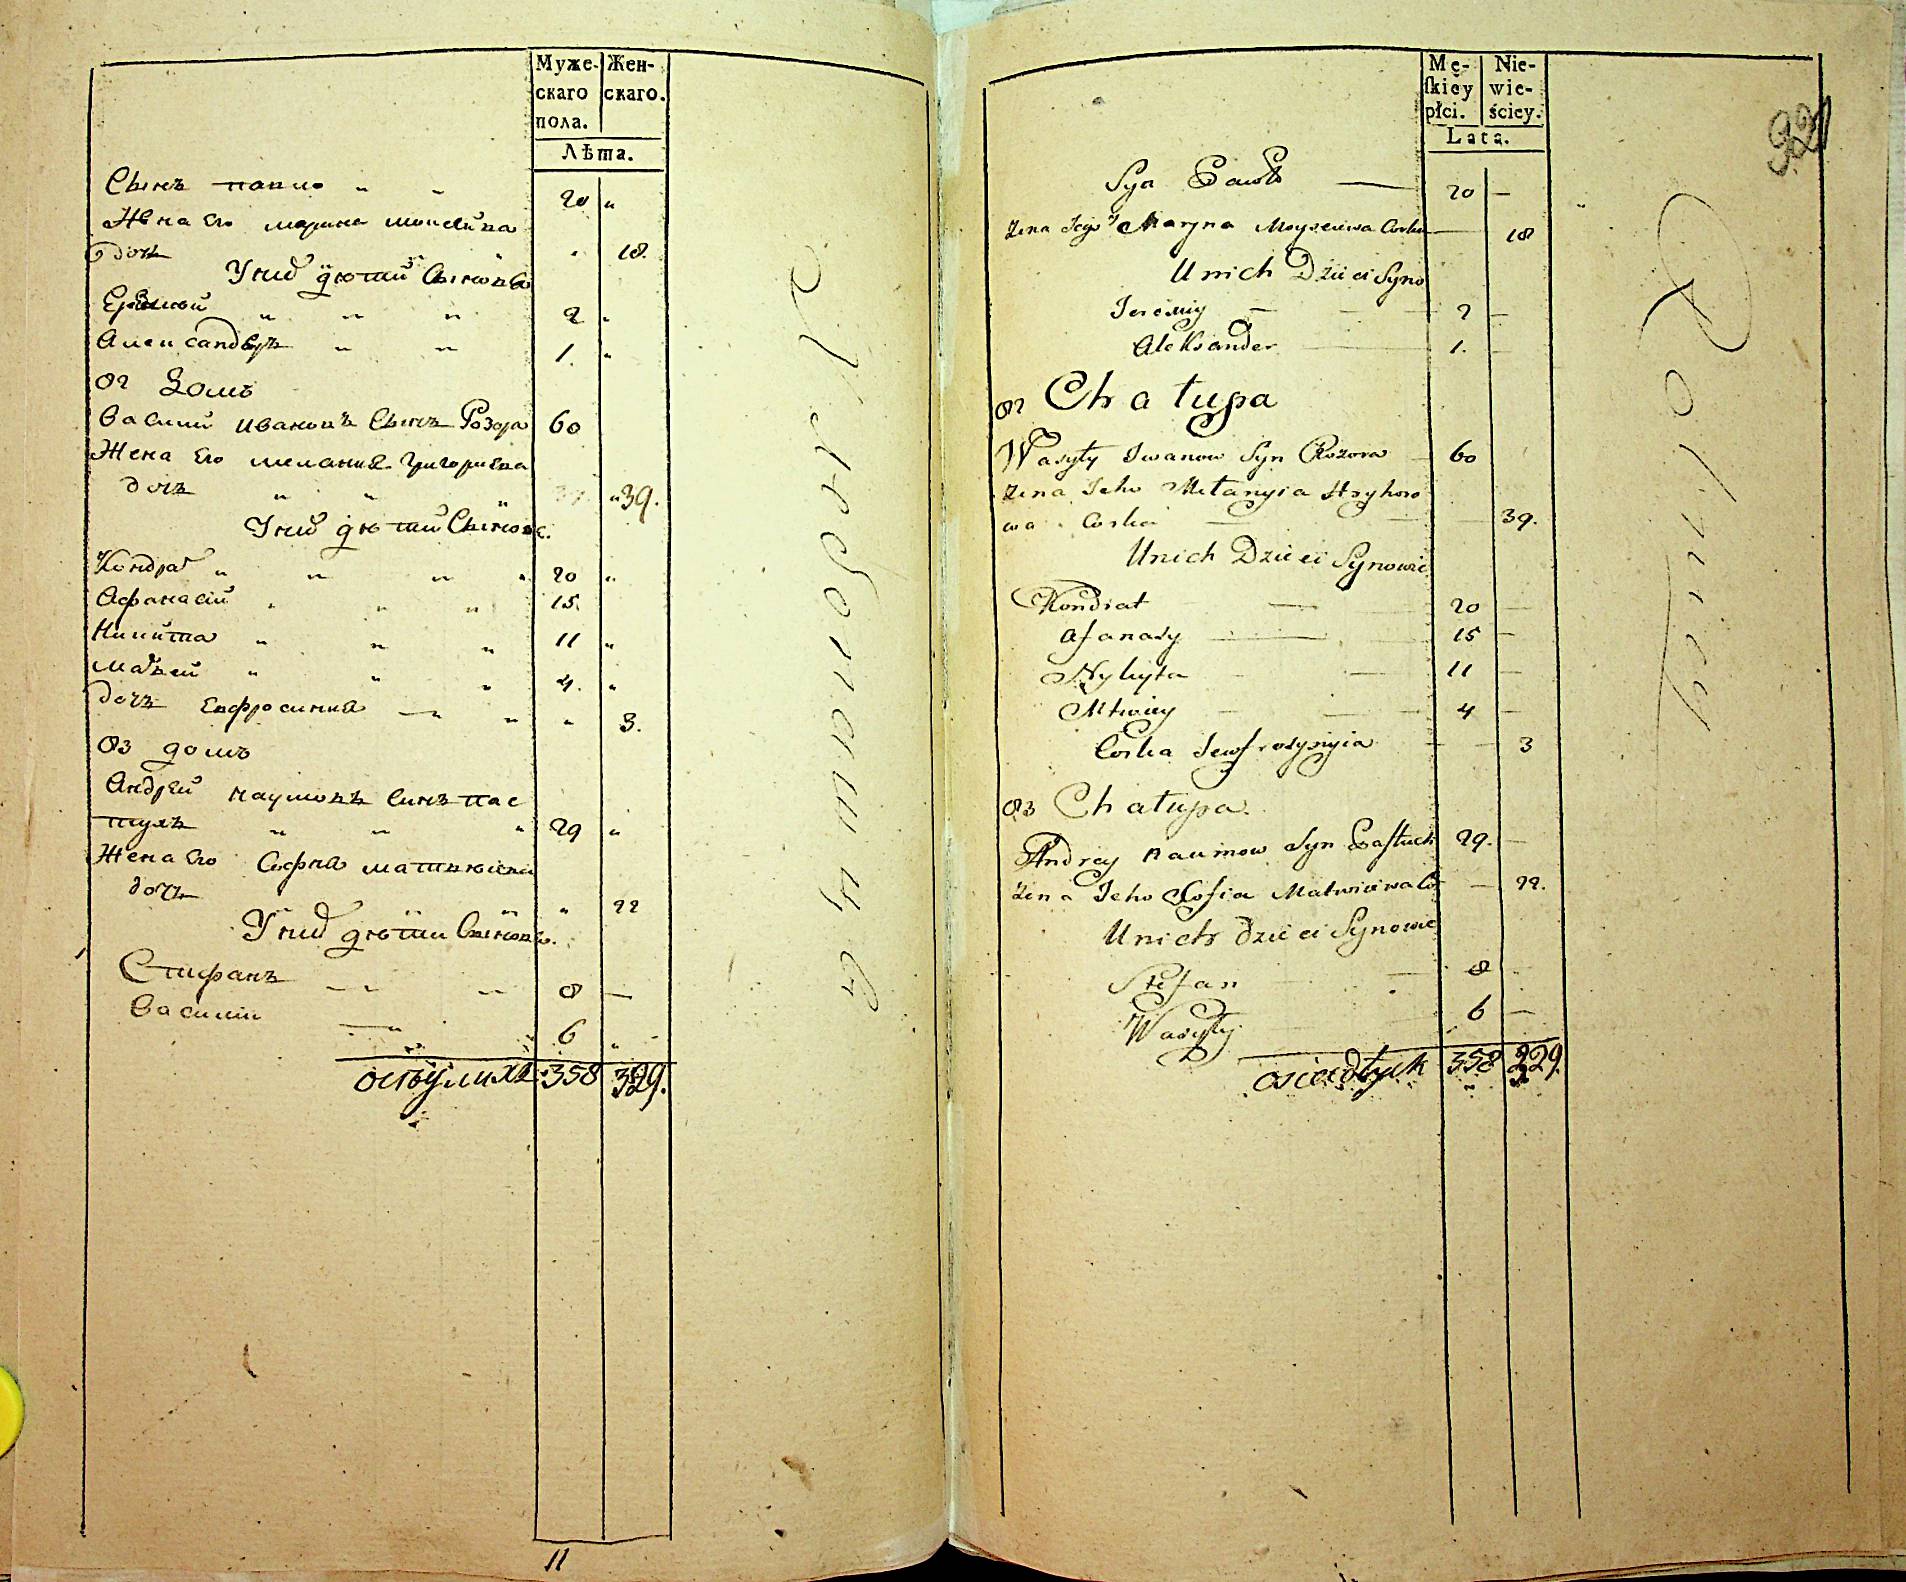 Муже-
скаго
пола.
Жен-
скаго.
Лѣта.
Сынъ павло " "
20 "
Жена Его марина мойсѣйва
дочь " 18.
У них дѣти Сыновѣ
Еремѣй " " " 2 "
Александеръ " " 1. "
82 Домъ
Василий Ивановъ Сынъ Розора 60
Жена Его мелания Григориева
дочь " " " 39.
У них дѣти Сыновѣ.
Кондрат " " " " 20 "
Афанасий " " " 15.
Никита " " " 11 "
Матвей " " " 4. "
дочь Евфросиния — " " " 3.
83 домъ
Андрей наумовъ Синъ пас
тухъ " " " 29 "
Жена Его София матвѣюва
дочь " 22
У них дѣти Сыновѣ.
Стифанъ 8 —
Василий 6 "
осѣдлихъ 358 329.
владѣния
11
Mę-
ſkiey
płci.
Nie-
wie-
ściey.
Lata.
321
Syn Pawło — 20 —
Zena Jego Maryna Moyseiwa Corka — 18
Unich Dzieci Syno
Jeremiy — 2 —
Aleksander 1. —
82 Chałupa
Wasyly Iwanow Syn Rozora 60
Zena Jeho Melanyia Hryhoro
wa Corka — 39.
Unich Dzieci Synowie
Kondrat — 20 —
Afanasy — 15 —
Nykyta — 11 —
Matwiey — 4 —
Corka Jewfrosynyia — — 3
83 Chałupa.
Andrey Naumow Syn Pastuch 29. —
Zena Jeho Zofia Matwiiwa Co — 22.
Unich Dzieci Synowie
Stefan — 8
Wasyly 6 —
osiadłych 358 329.